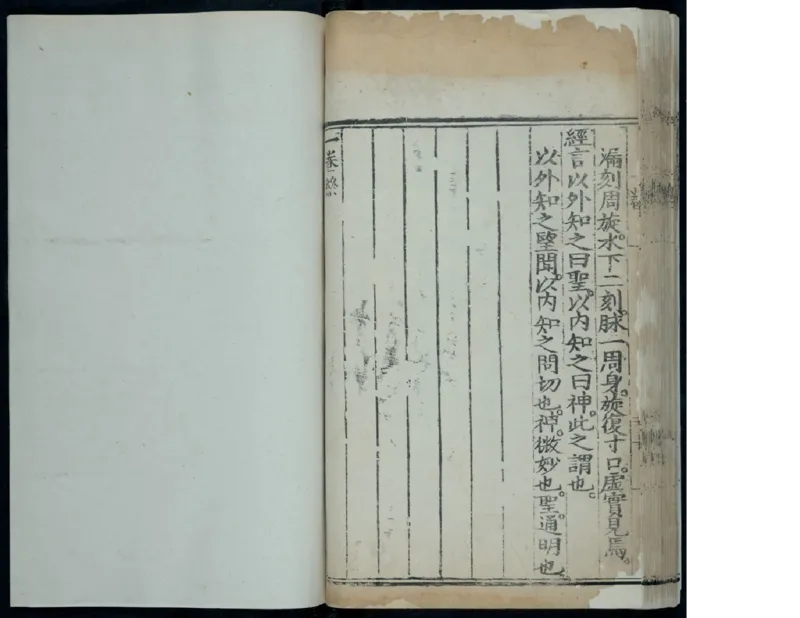 漏刻周旋。水下二刻。脉一周身。旋復寸口。虛實見焉。
經言以外知之曰聖。以内知之曰神。此之謂也。
以外知之望聞。以内知之問切也。神。微妙也。聖。通明也